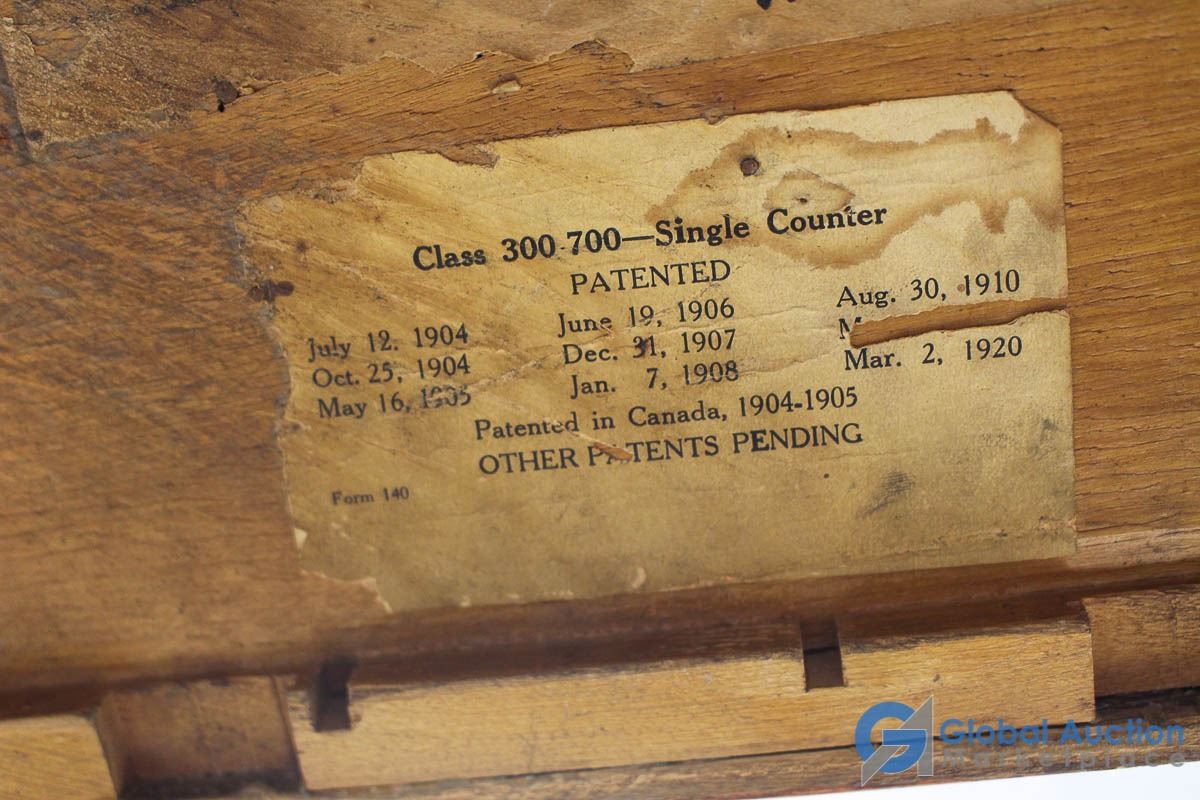 Class 300-700—Single Counter
PATENTED
July 12, 1904 June 19, 1906 Aug. 30, 1910
Oct. 25, 1904 Dec. 31, 1907
May 16, 1905 Jan. 7, 1908 Mar. 2, 1920
Patented in Canada, 1904-1905
OTHER PATENTS PENDING
Form 140
Global Auction
Marketplace